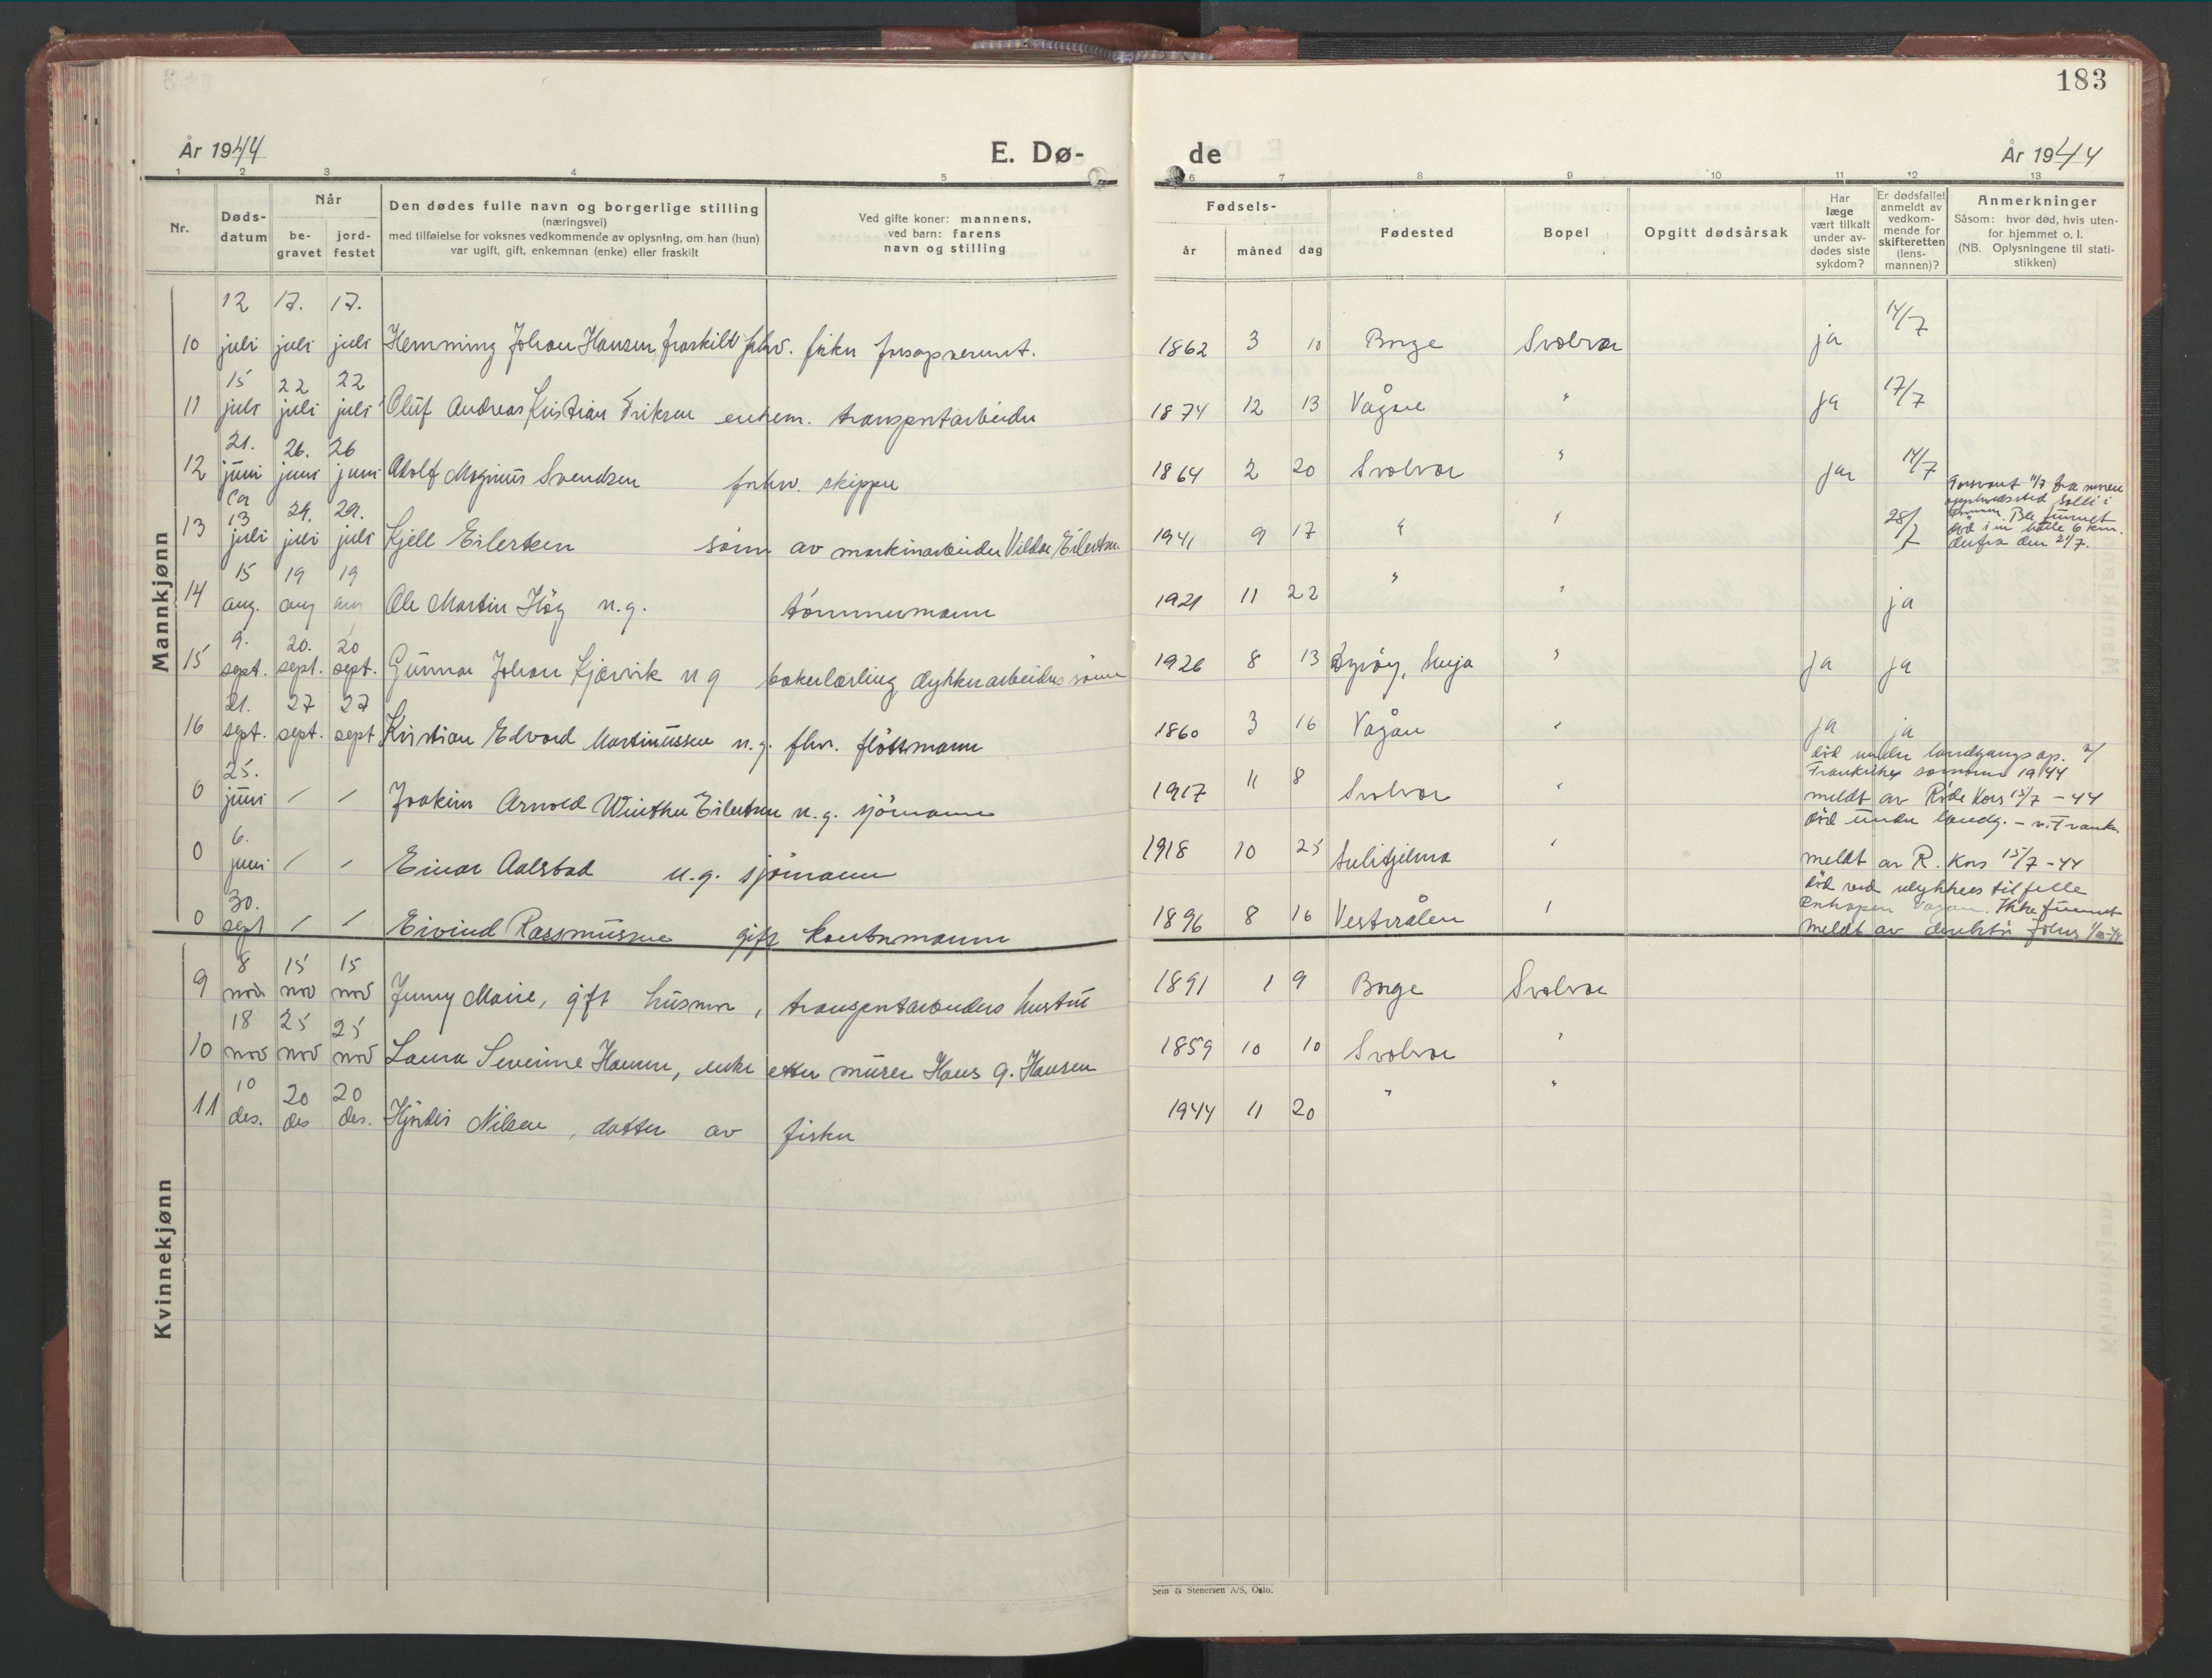 183
År 1944
E. Dø-
de
År 1944
1 2 3 4 5 6 7 8 9 10 11 12 13
Nr.
Døds-
datum
Når
be-
gravet
jord-
festet
Den dødes fulle navn og borgerlige stilling
(næringsvei)
med tilføielse for voksnes vedkommende av oplysning, om han (hun)
var ugift, gift, enkemann (enke) eller fraskilt
Ved gifte koner: mannens,
ved barn: farens
navn og stilling
Fødsels-
år måned dag
Fødested
Bopel
Opgitt dødsårsak
Har
læge
vært tilkalt
under av-
dødes siste
sykdom?
Er dødsfallet
anmeldt av
vedkom-
mende for
skifteretten
(lens-
mannen)?
Anmerkninger
Såsom: hvor død, hvis uten-
for hjemmet o. l.
(NB. Oplysningene til stati-
stikken)
Mannkjønn
12 17. 17.
10 juli juli juli Hemming Johan Hansen fraskilt fhv. fisker forsopserunt. 1862 3 10 Borge Svolvær ja 14/7
15 22 22
11 juli juli juli Oluf Andreas Kristian Eriksen enkem. transportarbeider 1874 12 13 Vågan " ja 17/7
21. 26. 26
12 juni juni juni Adolf Magnus Svendsen forhv. skipper 1864 2 20 Svolvær " ja 14/7
ca
13 29. 29.
13 juli juli juli Kjell Eilertsen sønn av maskinarbeider Vildor Eilertsen 1941 9 17 " " 28/7
Forsvant 11/7 fra
oppholdssted Solli i
Ble funnet
død i en 6 km.
derfra den 21/7.
15 19 19
14 aug. aug aug Ole Martin Høg u.g. tømmermann 1921 11 22 " " ja
9. 20. 20
15 sept. sept. sept. Gunnar Johan Kjærvik u g bakerlærling dykkerarbeiders sønn 1926 8 13 Dyrøy, Senja " ja ja
21. 27 27
16 sept. sept. sept Kristian Edvard Martinussen u.g. fhv. fløttmann 1860 3 16 Vågan " ja ja
25.
0 juni / / Joakim Arnold Winther Eilertsen u.g. sjømann 1917 11 8 Svolvær "
død under landgangsop. i
Frankrike sommeren 1944
meldt av Røde Kors 15/7 - 44
6.
0 juni / / Einar Aalstad u.g. sjømann 1918 10 25 Sulitjelma "
død under landg. - v. Frankr.
meldt av R. Kors 15/7 - 44
30.
0 sept / / Eivind Rasmussen gift kontormann 1896 8 16 Vesterålen "
død ved ulykkestilfelle
Vågan. Ikke funnet
Meldt av
Kvinnekjønn
8 15 15
9 nov. nov nov Jenny Marie, gift husmor, transportarbeiders hustru 1891 1 9 Borge Svolvær
18 25 25
10 nov nov nov Laura Severine Hansen, enke etter murer Hans G. Hansen 1859 10 10 Svolvær "
10 20 20
11 des. des des. Hjørdis Nilsen, datter av fisker 1944 11 20 " "
Sem & Stenersen A/S, Oslo.